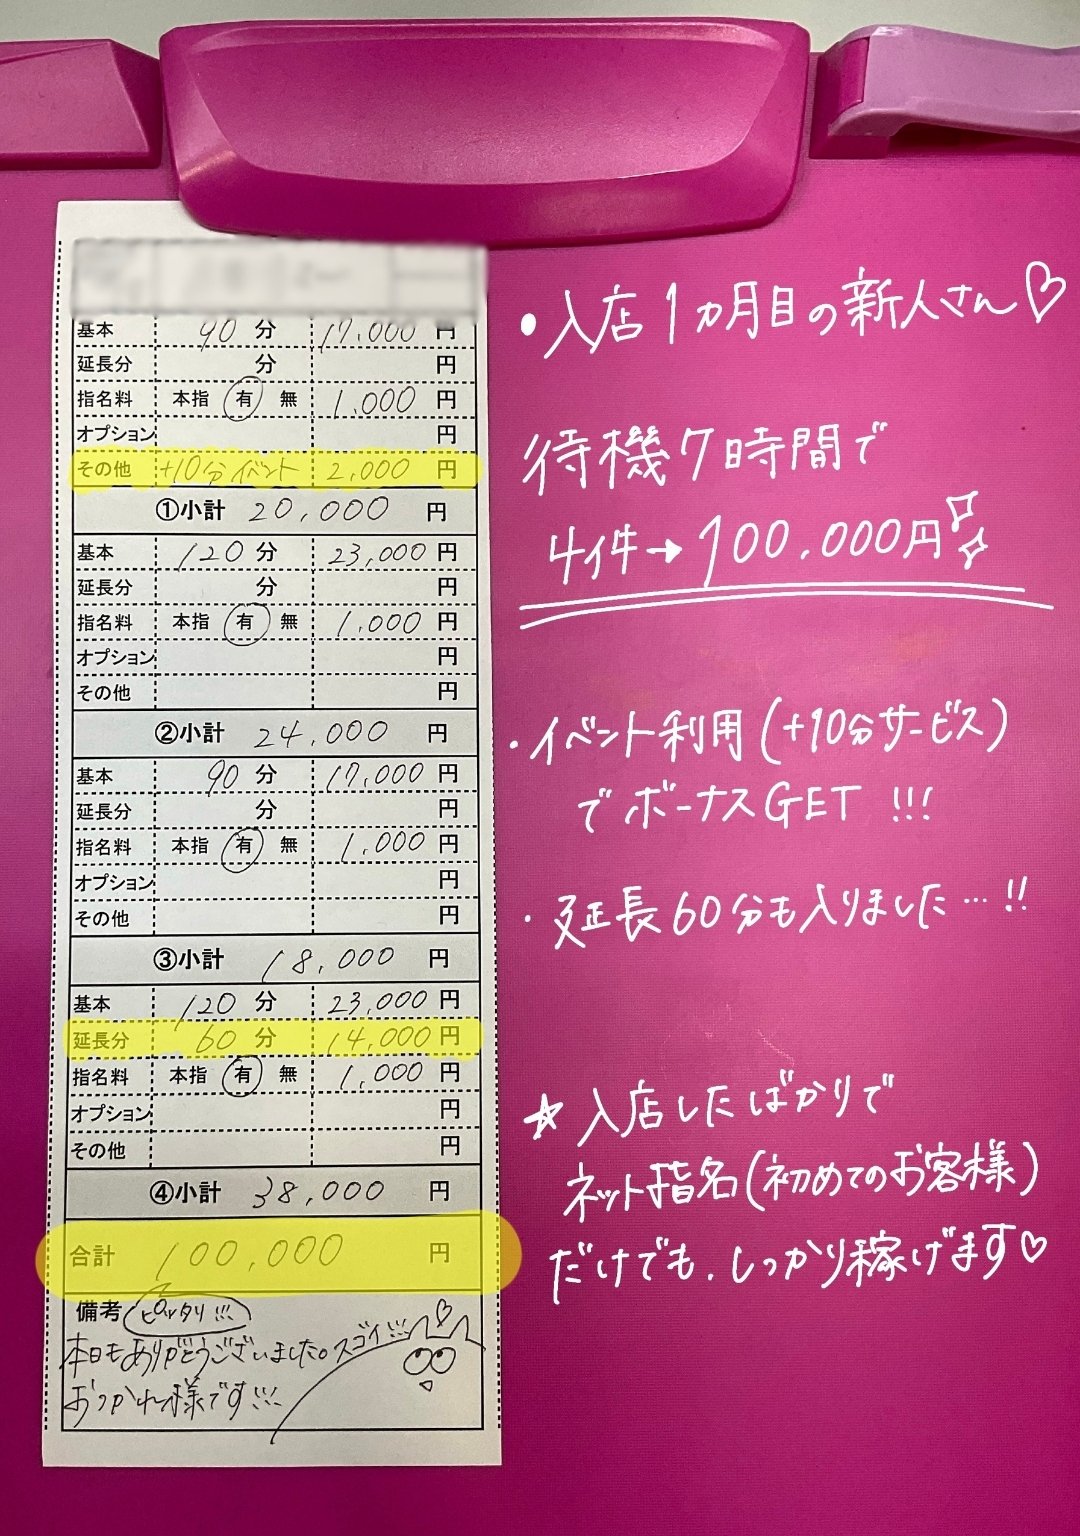 基本 90 分 17,000 円
延長分 分 円
指名料 本指 有 無 1,000 円
オプション 円
その他 +10分イベント 2,000 円
①小計 20,000 円
基本 120 分 23,000 円
延長分 分 円
指名料 本指 有 無 1,000 円
オプション 円
その他 円
②小計 24,000 円
基本 90 分 17,000 円
延長分 分 円
指名料 本指 有 無 1,000 円
オプション 円
その他 円
③小計 18,000 円
基本 120 分 23,000 円
延長分 60 分 14,000 円
指名料 本指 有 無 1,000 円
オプション 円
その他 円
④小計 38,000 円
合計 100,000 円
備考 ピッタリ!!!
本日もありがとうございました。スゴイ!!!
おつかれ様です!!!
•入店1ヵ月目の新人さん♡
待機7時間で
4件→100,000円
・イベント利用(+10分サービス)
でボーナスGET!!!
・延長60分も入りました…!!
☆入店したばかりで
ネット指名(初めてのお客様)
だけでも、しっかり稼げます♡